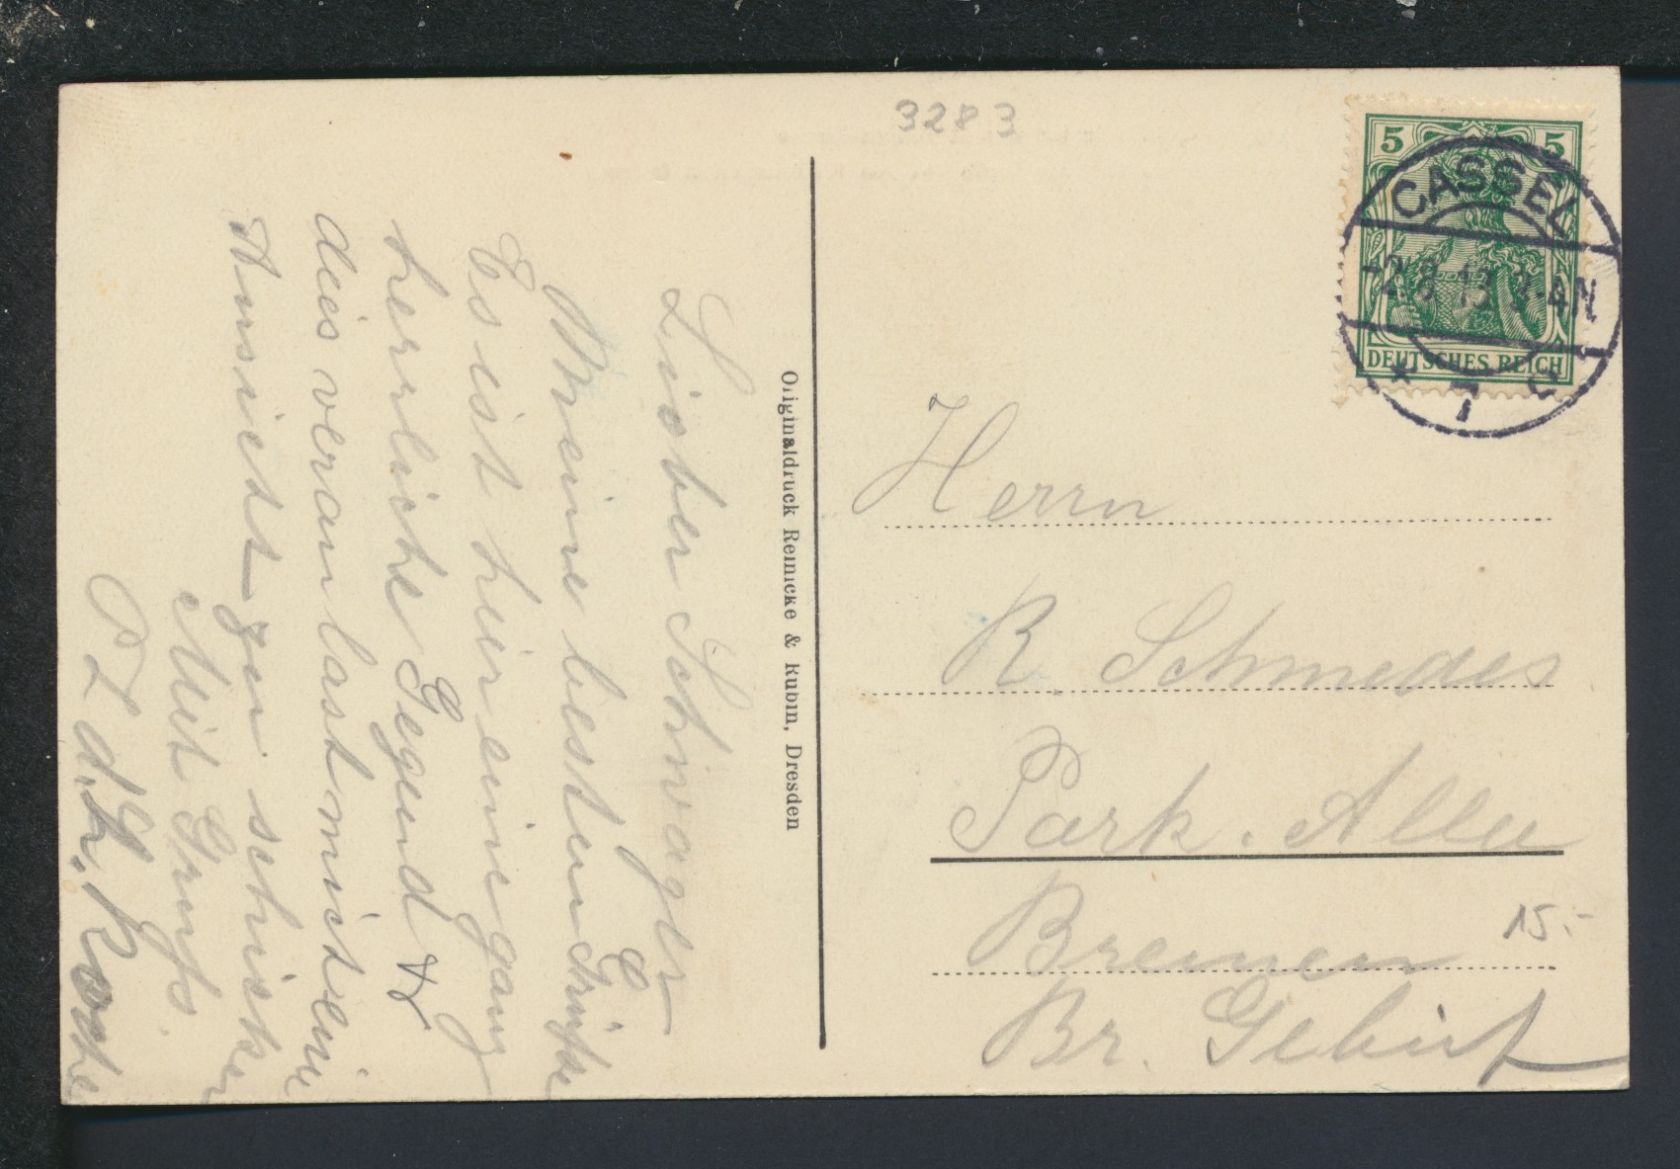 3283
5 5
DEUTSCHES REICH
CASSEL
-2.8.13 3-4N
* 1 c
Originaldruck Reinicke & Rubin, Dresden
Lieber Schwager
Meine besten Grüße
Es ist hier eine ganz
herrliche Gegend &
dies veranlasst mich eine
Ansicht zu schicken
Mit Gruß
Herrn
R. Schmedes
Park. Allee
Bremen
Br. Gebiet
15.-